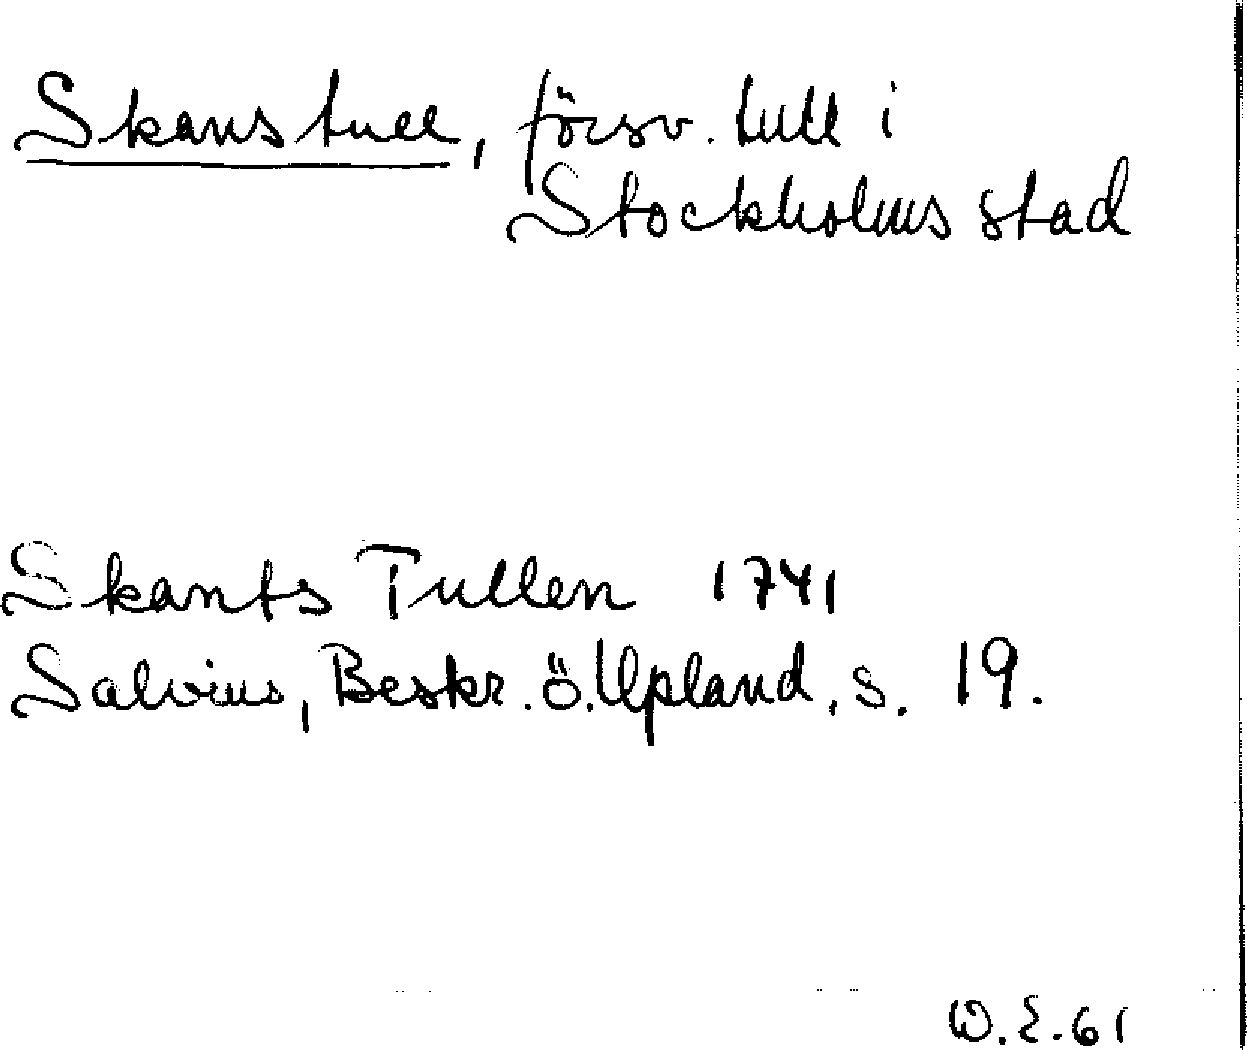 Skanstull, försv. tull i
Stockholms stad
Skants Tullen 1741
Salvius, Beskr. ö. Upland, s. 19.
W.E. 61